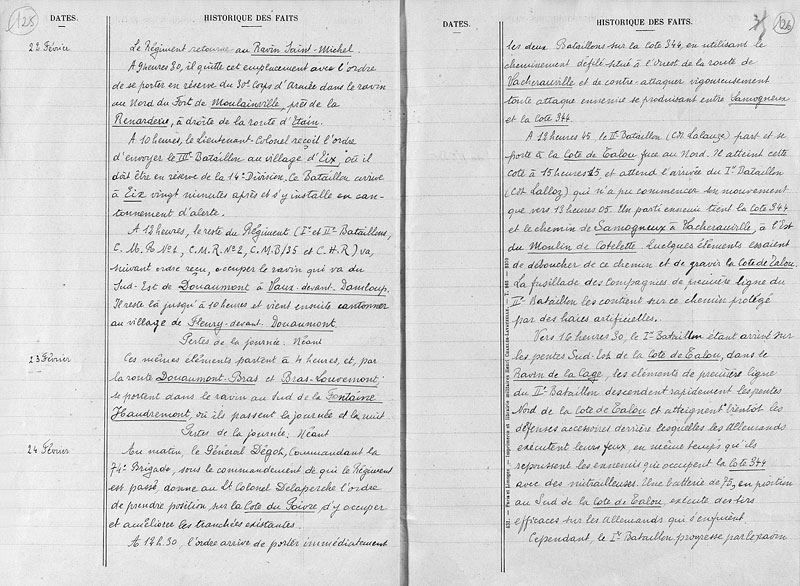 125
DATES.
HISTORIQUE DES FAITS.
22 Février
Le Régiment retourne au Ravin Saint-Michel
A 9 heures 30, il quitte cet emplacement avec l'ordre
de se porter en réserve du 30e Corps d'Armée dans le ravin
au Nord du Fort de Moulainville, près de la
Renarderie, à droite de la route d'Etain.
A 10 heures, le Lieutenant-Colonel reçoit l'ordre
d'envoyer le IIIe Bataillon au village d'Eix, où il
doit être en réserve de la 14e Division. Ce Bataillon arrive
à Eix vingt minutes après et s'y installe en can-
tonnement d'alerte.
A 12 heures, le reste du Régiment (Ier et IIe Bataillons,
C.M. Re No 1, C.M.R. No 2, C.M.B/35 et C.H.R) va,
suivant ordre reçu, occuper le ravin qui va du
Sud-Est de Douaumont à Vaux-devant-Damloup.
Il reste là jusqu'à 10 heures et vient ensuite cantonner
au village de Fleury-devant-Douaumont.
Pertes de la journée: Néant
23 Février
Ces mêmes éléments partent à 4 heures, et, par
la route Douaumont-Bras et Bras-Louvemont,
se portent dans le ravin au Sud de la Fontaine
Haudremont, où ils passent la journée et la nuit.
Pertes de la journée: Néant
24 Février
Au matin, le Général Dégot, Commandant la
74e Brigade, sous le commandement de qui le Régiment
est passé, donne au Lt Colonel Delaperche l'ordre
de prendre position sur la Cote du Poivre, d'y occuper
et améliorer les tranchées existantes.
A 12h.30, l'ordre arrive de porter immédiatement
126
DATES.
HISTORIQUE DES FAITS.
les deux Bataillons sur la Cote 344, en utilisant le
cheminement défilé situé à l'Ouest de la route de
Vacherauville et de contre-attaquer vigoureusement
toute attaque ennemie se produisant entre Samogneux
et la Cote 344.
A 12 heures 45, le IIe Bataillon (Ct Lalauze) part et se
porte à la Cote de Talou face au Nord. Il atteint cette
cote à 15 heures 15 et attend l'arrivée du Ier Bataillon
(Ct Lalloz) qui n'a pu commencer son mouvement
que vers 13 heures 05. Un parti ennemi tient la Cote 344
et le chemin de Samogneux à Vacherauville, à l'Est
du Moulin de Cotelette. Quelques éléments essaient
de déboucher de ce chemin et de gravir la Cote de Talou.
La fusillade des Compagnies de première ligne du
IIe Bataillon les contient sur ce chemin protégé
par des haies artificielles.
Vers 16 heures 30, le Ier Bataillon étant arrivé sur
les pentes Sud-Est de la Cote de Talou, dans le
Ravin de la Cage, les éléments de première ligne
du IIe Bataillon descendent rapidement les pentes
Nord de la Cote de Talou et atteignent bientôt les
défenses accessoires derrière lesquelles les Allemands
exécutent leurs feux, en même temps qu'ils
repoussent les ennemis qui occupent la Cote 344
avec des mitrailleuses. Une batterie de 75, en position
au Sud de la Cote de Talou, exécute des tirs
efficaces sur les Allemands qui s'enfuient.
Cependant, le Ier Bataillon progresse par le ravin